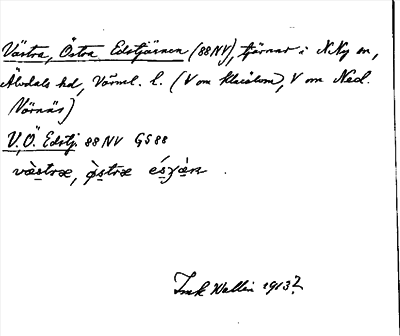 Västra, Östra Edstjärnen (88NV), tjärnar i N Ny sn,
Älvdals hd, Värml. l. (V om Klaiälven, V om Ned.
Värnäs)
V, Ö. Edstj. 88 NV GS 88
væ̀stræ,
Insk Wallin 1913?